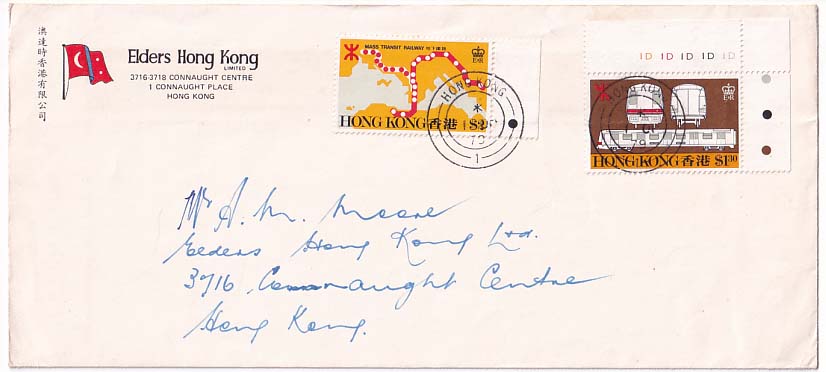 澳達時香港有限公司
Elders Hong Kong
LIMITED
3716-3718 CONNAUGHT CENTRE
1 CONNAUGHT PLACE
HONG KONG
MASS TRANSIT RAILWAY
E II R
HONG KONG 香港 $2
HONG KONG
79
1
1D 1D 1D 1D 1D
E II R
HONG KONG 香港 $1.30
HONG KONG
79
Mr A. M. Moore
Elders Hong Kong Ltd.
3716, Connaught Centre
Hong Kong.